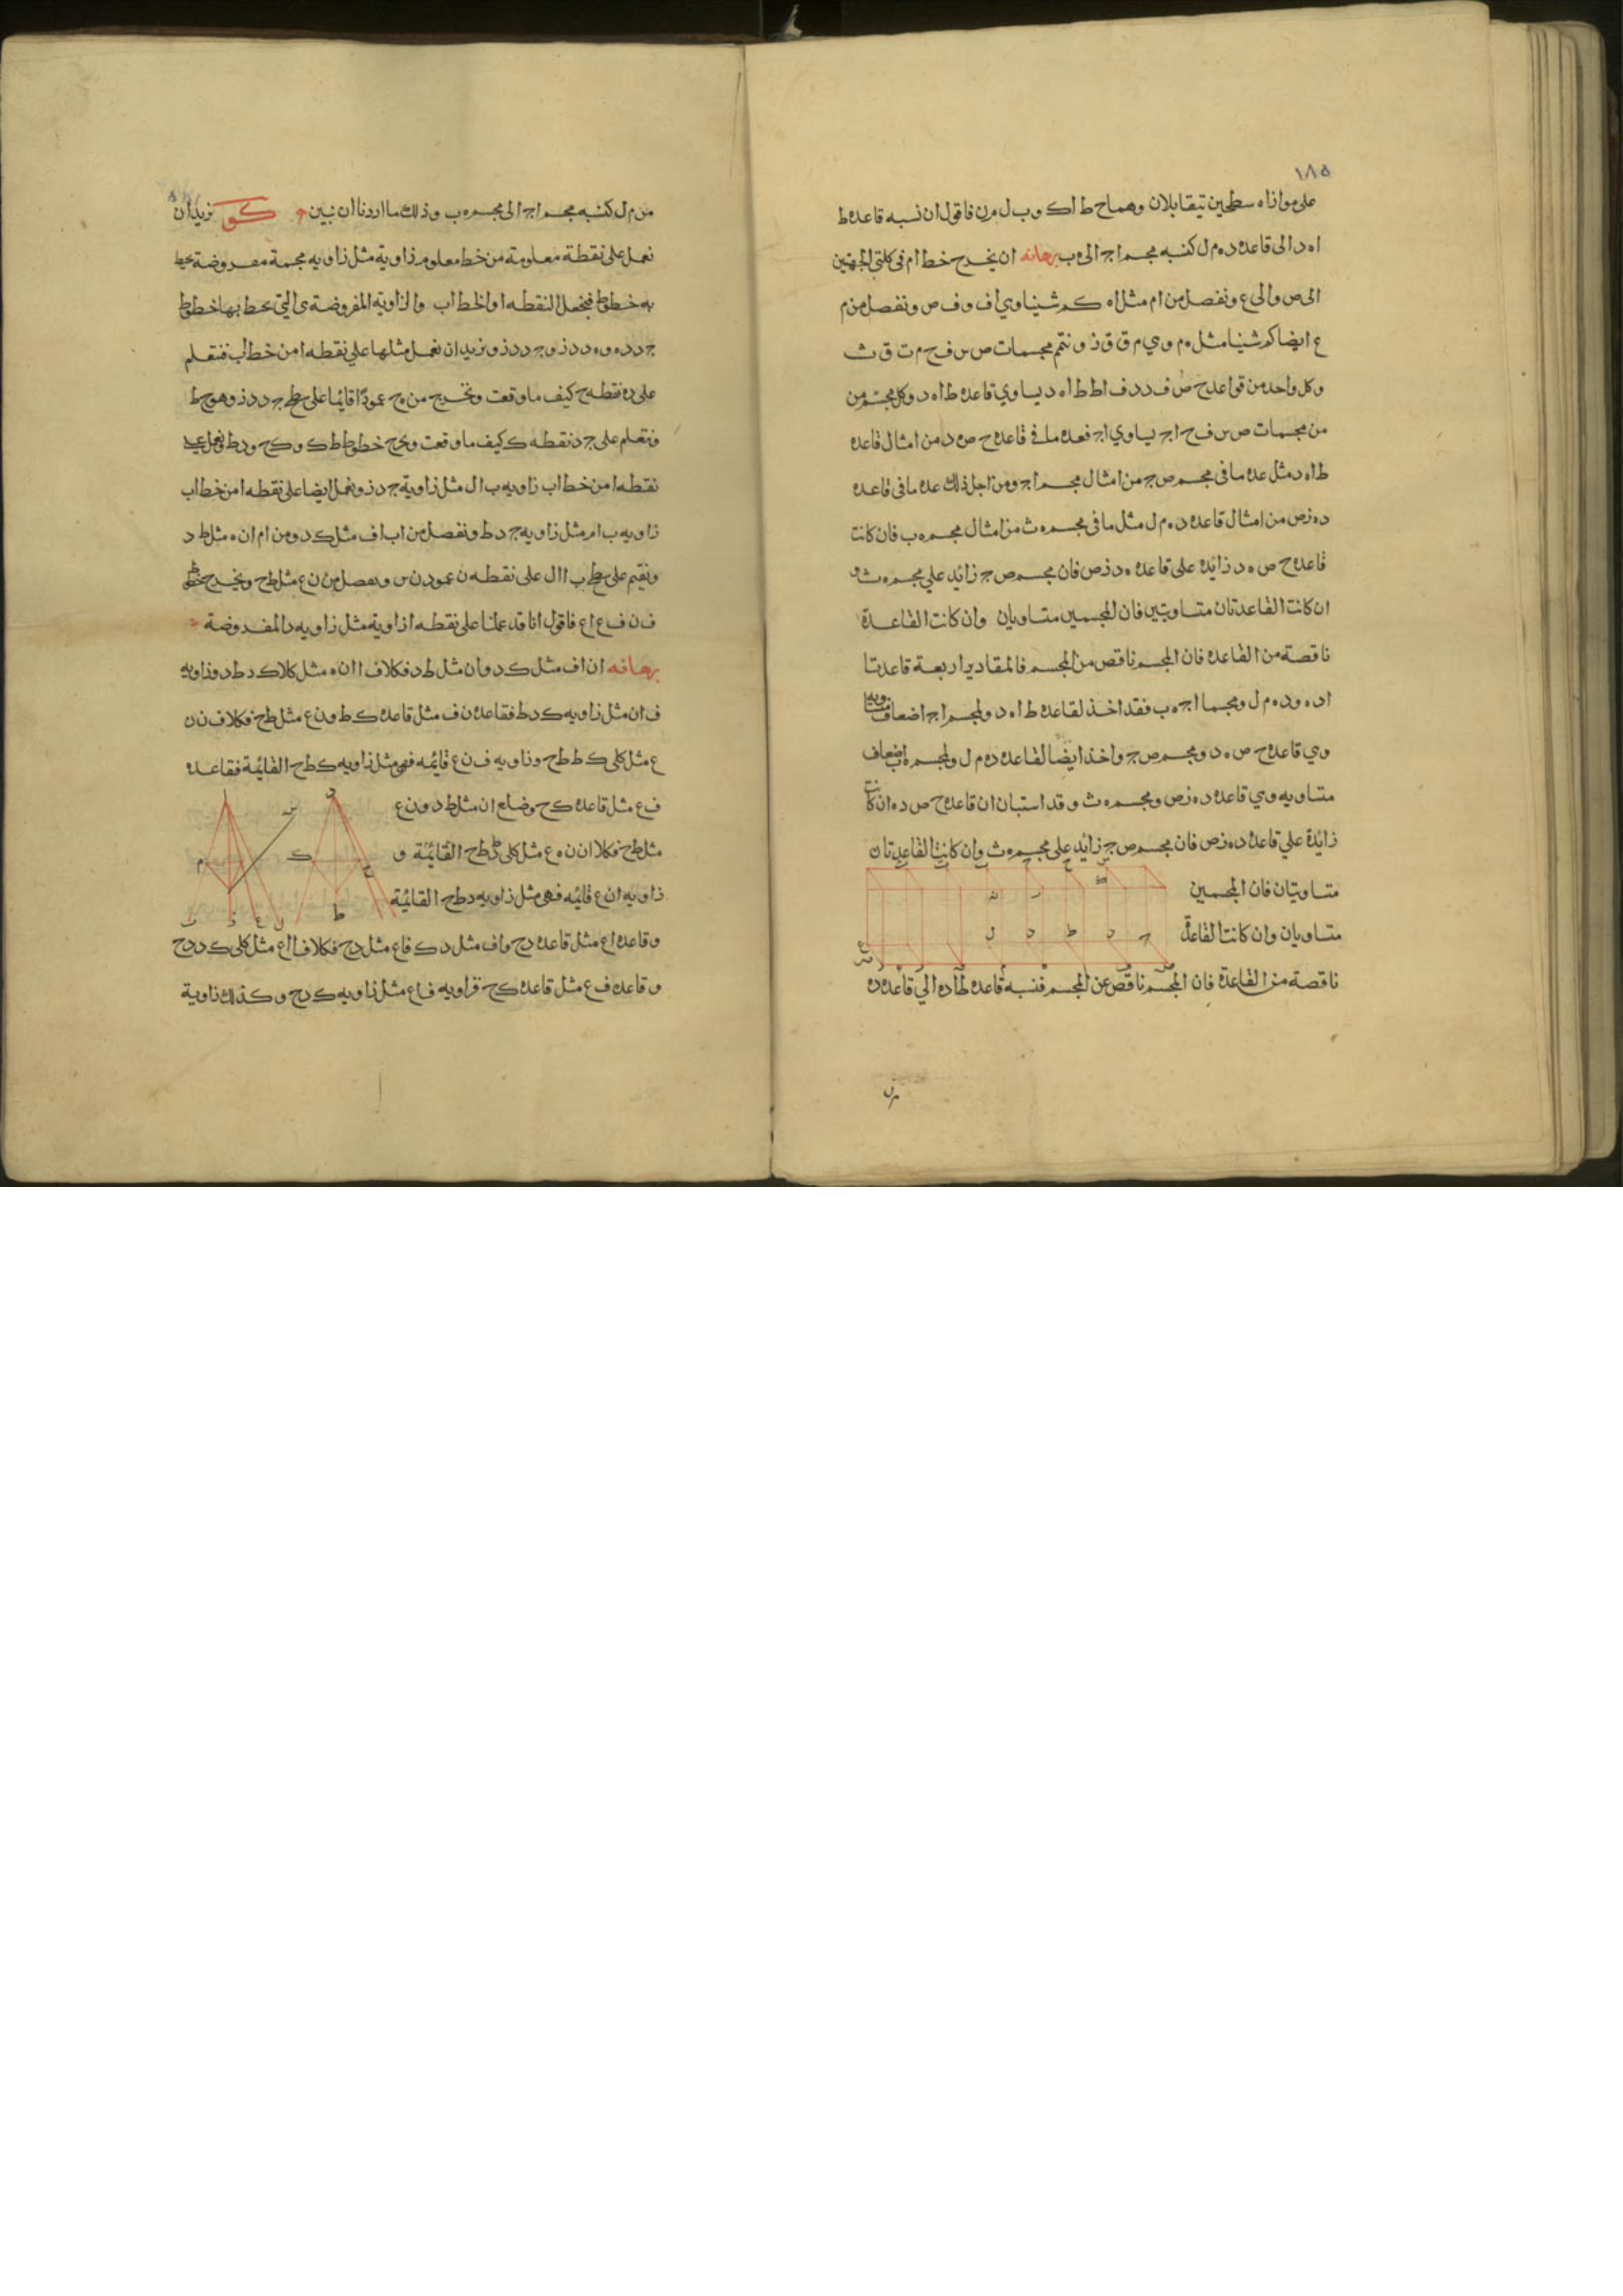 ١٨٥
على موازاه سطحين يتقابلان وهما ح ط ا ك و ب ل م ن فاقول ان نسبه قاعده ط
ا ه د الى قاعده د ه م ل كنسبه مجسم ا ج الى ه ب برهانه ان نخرج خط ا م فى كلتي الجهتين
الى ص والى ع ونفصل من ا م مثل ا ه كم شينا وي ا ف و ف ص ونفصل من م
ع ايضا كم شينا مثل ه م وي م ق ق ذ و نتمم مجسمات ص س ف ح م ت ق ث
وكل واحد من قواعد ح ص ف د د ف ا ط ط ا ه د يساوي قاعده ط ا ه د وكل مجسم من
من مجسمات ص س ف ح ا ج يساوي ا ج فعده ما في قاعده ح ص ه د من امثال قاعده
ط ا ه د مثل عده ما في مجسم ص ج من امثال مجسم ا ج ومن اجل ذلك عده ما في قاعده
د ه ز ص من امثال قاعده د ه م ل مثل ما في مجسم ه ث من امثال مجسم ه ب فان كانت
قاعده ح ص ه د زائده على قاعده ه د ز ص فان مجسم ص ج زائد علي مجسم ه ث و
ان كانت القاعدتان متساويتين فان المجسمين متساويان وان كانت القاعدة
ناقصة من القاعده فان المجسم ناقص من المجسم فالمقادير اربعة قاعدتا
ا د ه و د ه م ل ومجسما ا ج ه ب فقد اخذ لقاعده ط ا ه د ولمجسم ا ج اضعاف متساويه
وي قاعده ح ص ه د ومجسم ص ج واخذ ايضا لقاعده د ه م ل ولمجسم ه ب اضعاف
متساويه وي قاعده د ه ز ص ومجسم ه ث وقد استبان ان قاعده ح ص د ه ان كانت
زائدة علي قاعده د ه ز ص فان مجسم ص ج زائد على مجسم ه ث وان كانت القاعدتان
متساويتان فان المجسمين
متساويان وان كانت القاعدة
ناقصة من القاعدة فان المجسم ناقص عن المجسم فنسبه قاعده ط ا د ه الي قاعده د ه
من م ل كنسبه مجسم ا ج الى مجسم ه ب وذلك ما اردنا ان نبين كو نريد ان
نعمل على نقطة معلومة من خط معلوم زاوية مثل زاويه مجسمة مفروضة يحيط
به خطوط فنجعل النقطه ا والخط ا ب والزاوية المفروضة ى التي يحيط بها خطوط
ج د د ه و ه د د ز و ج د د ز و نريد ان نعمل مثلها علي نقطه ا من خط ا ب فنتعلم
على د ه نقطه ح كيف ما وقعت ونخرج من ح عمودًا قائما على سطح ج د د ز وهو ح ط
ونتعلم على ج د نقطه ك كيف ما وقعت ونخرج خطوط ط ك و ك ح و د ط ونعمل على
نقطه ا من خط ا ب زاويه ب ا ل مثل زاوية ج د ز ونعمل ايضا على نقطه ا من خط ا ب
زاويه ب ا م مثل زاويه ج د ط ونفصل من ا ب ا ف مثل ك د ومن ا م ا ن ه مثل ط د
ونقيم على سطح ب ا ا ل على نقطه ن عمود ن س ونفصل من ن ع مثل ط ح ونخرج خطوط
ف ن ف ع ا ع فاقول انا قد عملنا على نقطه ا زاوية مثل زاويه د المفروضة
برهانه ان ا ف مثل ك د و ا ن مثل ط د فكلا ف ا ا ن ه مثل كلا ك د ط د وزاويه
ف ا ن مثل زاويه ك د ط فقاعده ن ف مثل قاعده ك ط و ن ع مثل ط ح فكلا ف ن ن
ع مثل كلى ك ط ط ح وزاويه ف ن ع قائمه فهي مثل زاويه ك ط ح القائمة فقاعده
ف ع مثل قاعده ك ح وضلع ا ن مثل ط د و ن ع
مثل ط ح فكلا ا ن ن ه ع مثل كلى د ط ط ح القائمة و
زاويه ا ن ع قائمه فهى مثل زاويه د ط ح القائمة
وقاعده ا ع مثل قاعده د ح و ا ف مثل د ك ف ا ع مثل د ح فكلا ف ا ا ع مثل كلى ك د د ح
وقاعده ف ع مثل قاعده ك ح فزاويه ف ا ع مثل زاويه ك د ح وكذلك زاوية